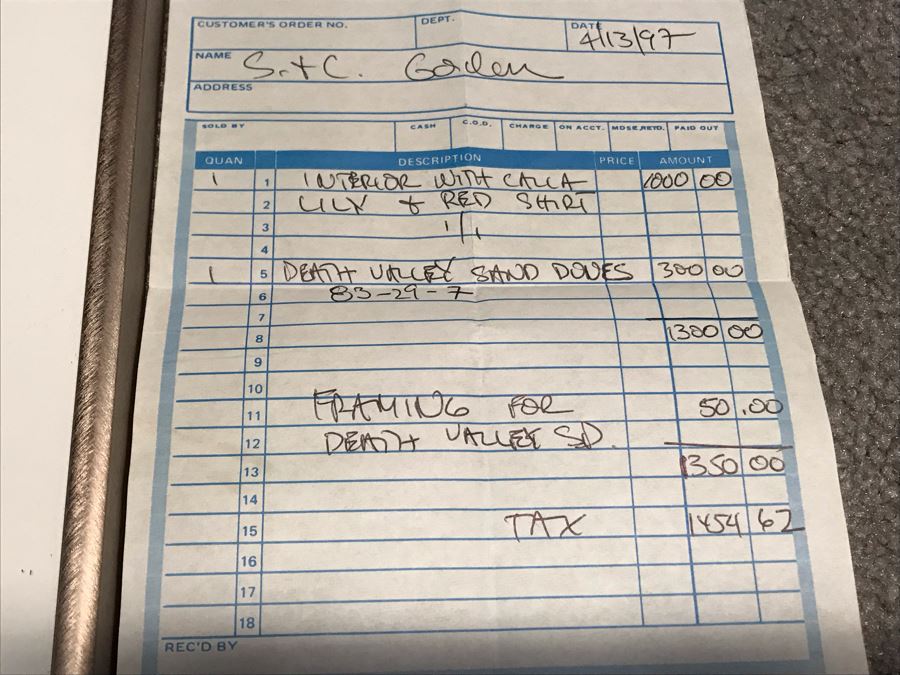 CUSTOMER'S ORDER NO. DEPT. DATE 4/13/97
NAME S. + C.
ADDRESS
SOLD BY CASH C.O.D. CHARGE ON ACCT. MDSE. RETD. PAID OUT
QUAN DESCRIPTION PRICE AMOUNT
1 1 INTERIOR WITH CALLA 1000 00
2 LILY + RED SHIRT
3 1/1
4
1 5 DEATH VALLEY SAND DUNES 300 00
6 83-29-7
7
8 1300 00
9
10
11 FRAMING FOR 50.00
12 DEATH VALLEY SD.
13 1350 00
14
15 TAX 1454 62
16
17
18
REC'D BY